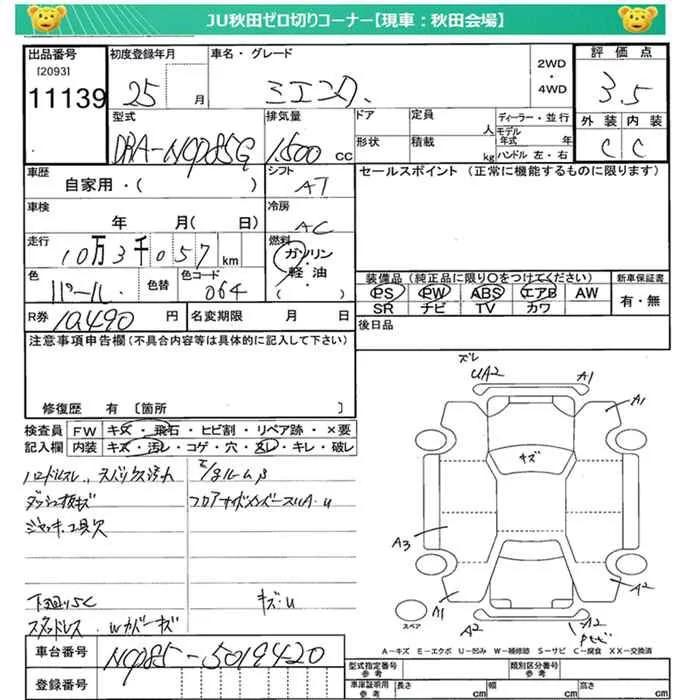 JU秋田ゼロ切りコーナー【現車：秋田会場】
出品番号 初度登録年月 車名・グレード 2WD ・ 4WD 評価点
[2093]
11139 25 月 シエンタ. 3.5
型式 排気量 ドア 定員 人 ディーラー・並行 外装 内装
DBA-NCP85G 1,500 cc 形状 積載 kg モデル年式 年 ハンドル 左・右 C C
車歴 シフト セールスポイント (正常に機能するものに限ります)
自家用・( ) AT
車検 冷房
年 月( 日) AC
走行 燃料
10万3千057km ガソリン・軽油・( )
色 色替 色コード 装備品 (純正品に限り○をつけてください) 新車保証書
パール. 064 PS PW ABS エアB AW 有・無
SR ナビ TV カワ
R券 10,490 円 名変期限 月 日 後日品
注意事項申告欄(不具合内容等は具体的に記入して下さい)
修復歴 有 [箇所 ]
検査員 FW キズ・飛石・ヒビ割・リペア跡・×要
記入欄 内装 キズ・汚レ・コゲ・穴・スレ・キレ・破レ
ダッシュ板キズ
ジャッキ.工具欠
下回りSC キズ・U
スタッドレス. Wカバーキズ
車台番号 NCP85-5019420
登録番号
ズレ
UA2 A1
A1
キズ
A3
A1 A2
A2
スペア
A－キズ E－エクボ U－凹み W－補修跡 S－サビ C－腐食 XX－交換済
型式指定番号 参考 類別区分番号 参考
車庫証明用 参考 長さ cm 幅 cm 高さ cm